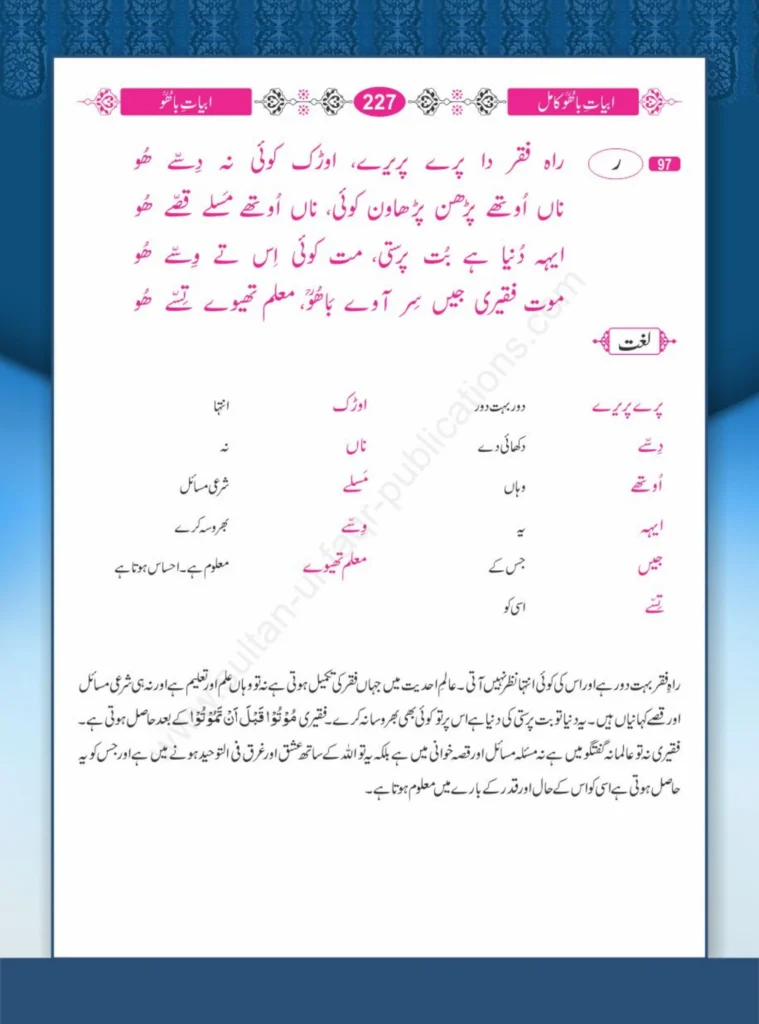 ابیاتِ باھُوؒ کامل 227 ابیاتِ باھُوؒ
97 ر راہ فقر دا پرے پریرے، اوڑک کوئی نہ دِسّے ھُو
ناں اُوتھے پڑھن پڑھاون کوئی، ناں اُوتھے مَسلے قصّے ھُو
ایہہ دُنیا ہے بُت پرستی، مت کوئی اِس تے وِسّے ھُو
موت فقیری جیں سِر آوے باھُوؒ، معلم تھیوے تِسّے ھُو
لغت
پرے پریرے دور بہت دور اوڑک انتہا
دِسّے دکھائی دے ناں نہ
اُوتھے وہاں مَسلے شرعی مسائل
ایہہ یہ وِسّے بھروسہ کرے
جیں جس کے معلم تھیوے معلوم ہے۔ احساس ہوتا ہے
تِسّے اسی کو
راہِ فقر بہت دور ہے اور اس کی کوئی انتہا نظر نہیں آتی۔ عالمِ احدیت میں جہاں فقر کی تکمیل ہوتی ہے نہ تو وہاں علم اور تعلیم ہے اور نہ ہی شرعی مسائل
اور قصے کہانیاں ہیں۔ یہ دنیا تو بت پرستی کی دنیا ہے اس پر تو کوئی بھی بھروسا نہ کرے۔ فقیری مُوْتُوْا قَبْلَ اَنْ تَمُوْتُوْا کے بعد حاصل ہوتی ہے۔
فقیری نہ تو عالمانہ گفتگو میں ہے نہ مسئلہ مسائل اور قصہ خوانی میں ہے بلکہ یہ تو اللہ کے ساتھ عشق اور غرق فی التوحید ہونے میں ہے اور جس کو یہ
حاصل ہوتی ہے اسی کو اس کے حال اور قدر کے بارے میں معلوم ہوتا ہے۔
www.sultan-ul-faqr-publications.com